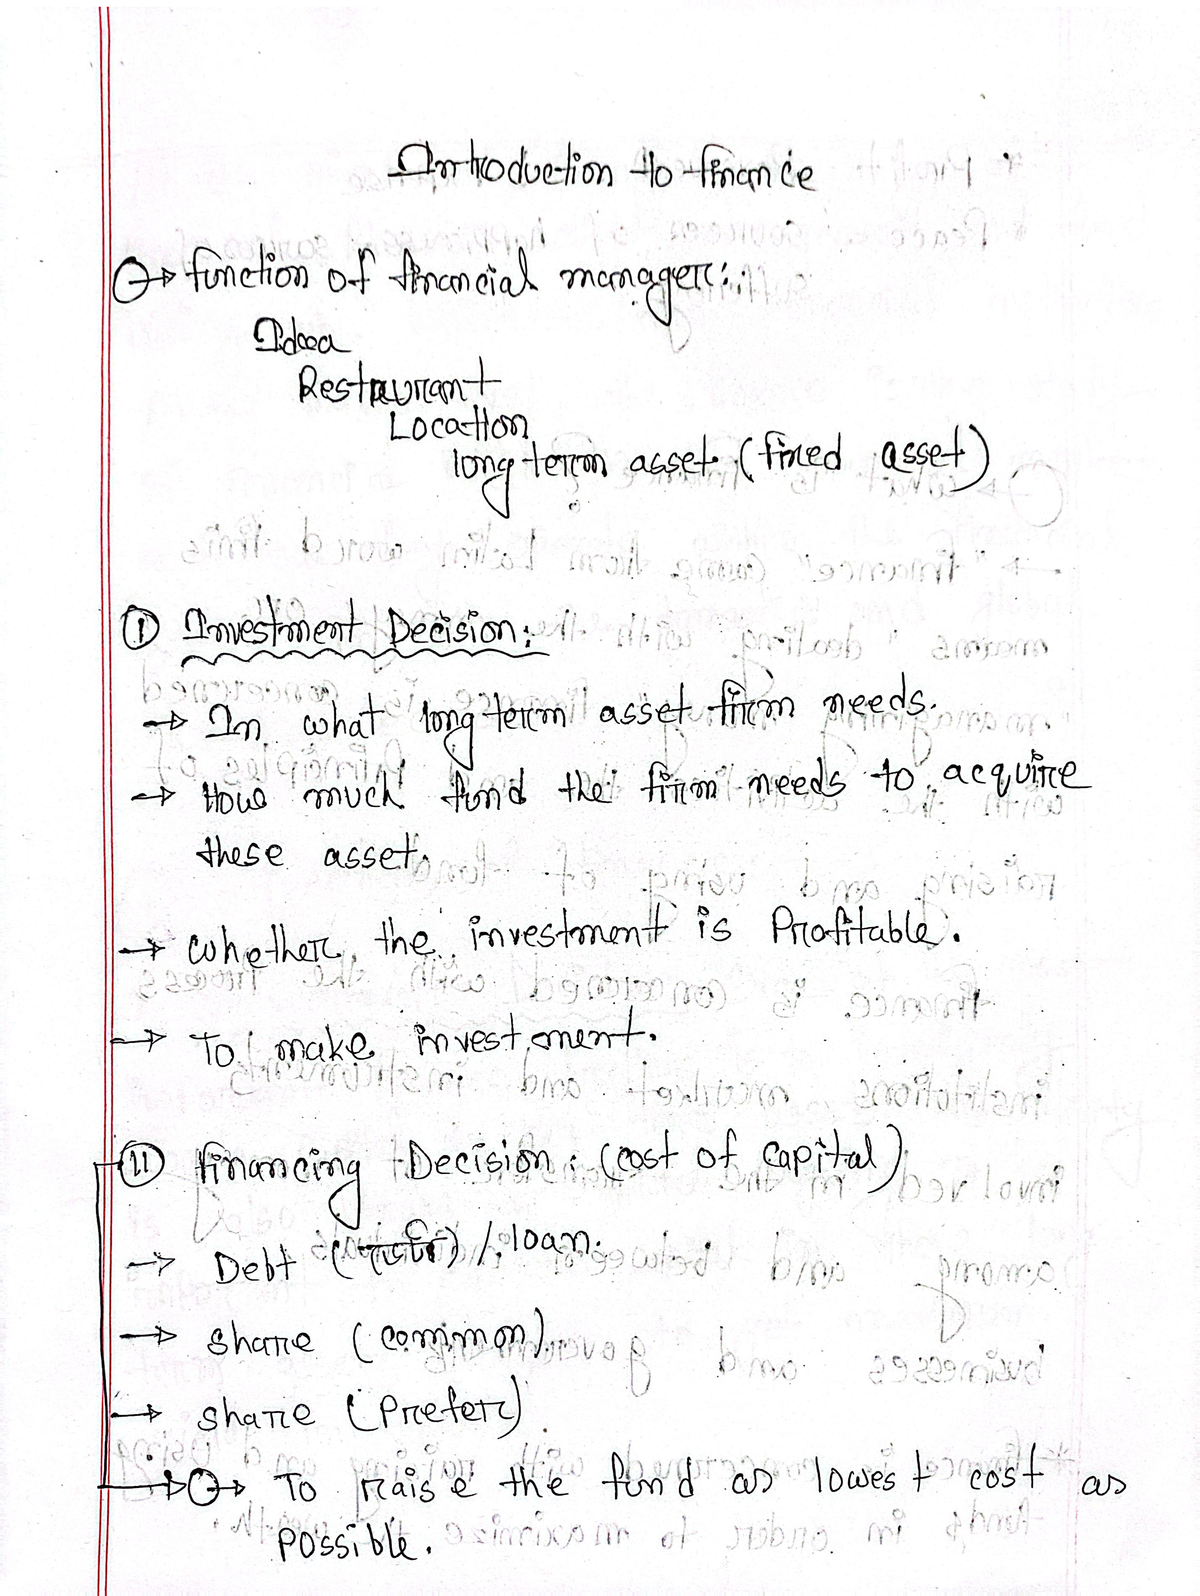 Introduction to finance
→ function of financial manager:
Idea
Restaurant
Location
long term asset (fixed asset)
① Investment Decision:
→ In what long term asset firm needs.
→ How much fund the firm needs to acquire
these asset.
→ Whether the investment is Profitable.
→ To make investment.
(ii) financing Decision: (cost of capital)
→ Debt / loan.
→ share (common)
→ share (Prefer)
→ To raise the fund as lowest cost as
possible.